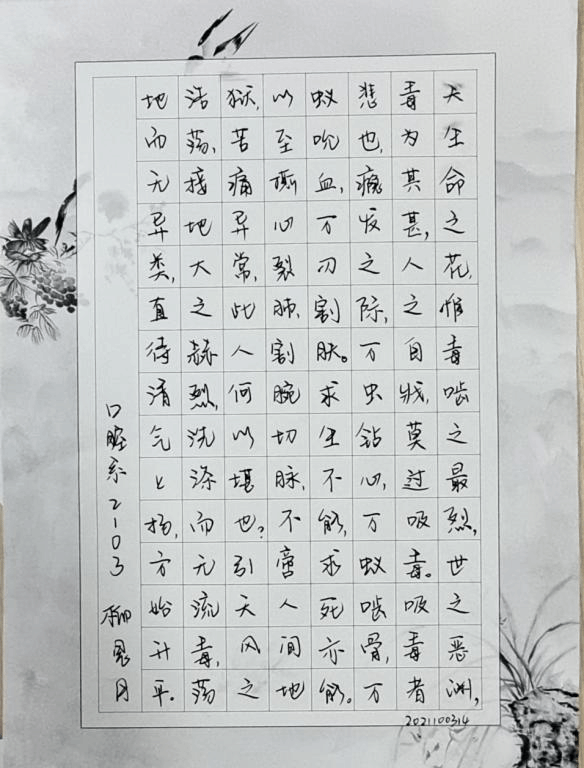 天生命之花,惟毒啮之最烈,世之恶渊,
毒为其甚,人之自戕,莫过吸毒。吸毒者
悲也,瘾发之际,万虫钻心,万蚁啮骨,万
蚁吮血,万刃割肤。求生不能,求死亦能。
以至撕心裂肺,割腕切脉,不啻人间地
狱,苦痛异常,此人何以堪也?引天风之
浩荡,接地大之赫烈,洗涤而无流毒,荡
地而无异类,直待清气上扬,方始升平。
口腔系2103 柳月
2021100314